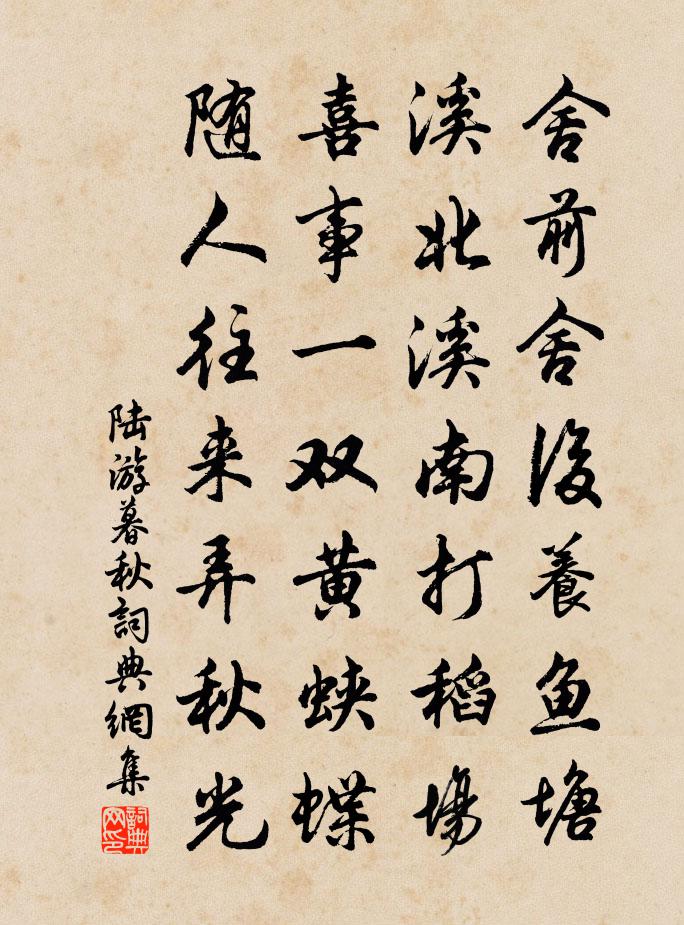 舍前舍後養鱼塘
溪北溪南打稻場
喜事一双黄蛱蝶
随人往来弄秋光
陆游暮秋詞典網集
詞典网印